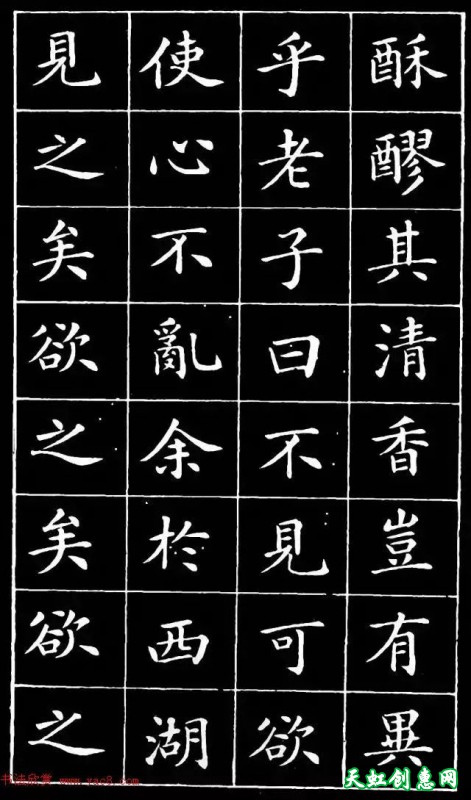 酥醪其清香豈有異
乎老子曰不見可欲
使心不亂余於西湖
見之矣欲之矣欲之
书法欣赏 www.yac8.com
天虹创惠网